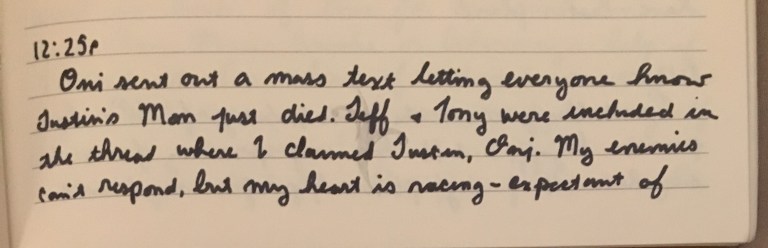 12:25p
Oni sent out a mass text letting everyone know
Justin's Mom just died. Jeff & Tony were included in
the thread where I claimed Justin, My enemies
can't respond, but my heart is racing - expectant of